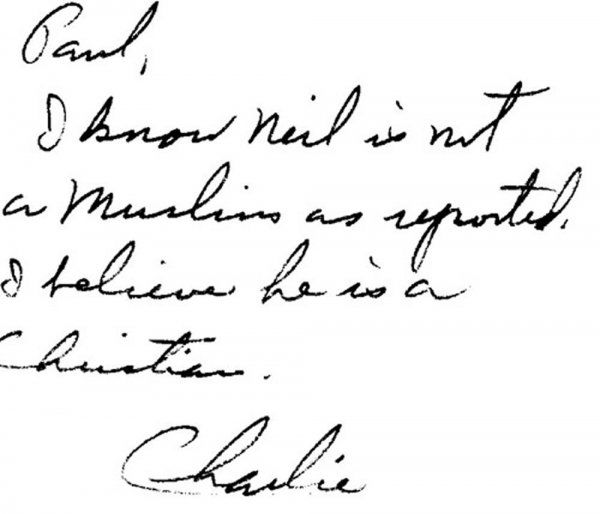 Paul,
I know Neil is not
a Muslims as reported.
I believe he is a
Christian.
Charlie